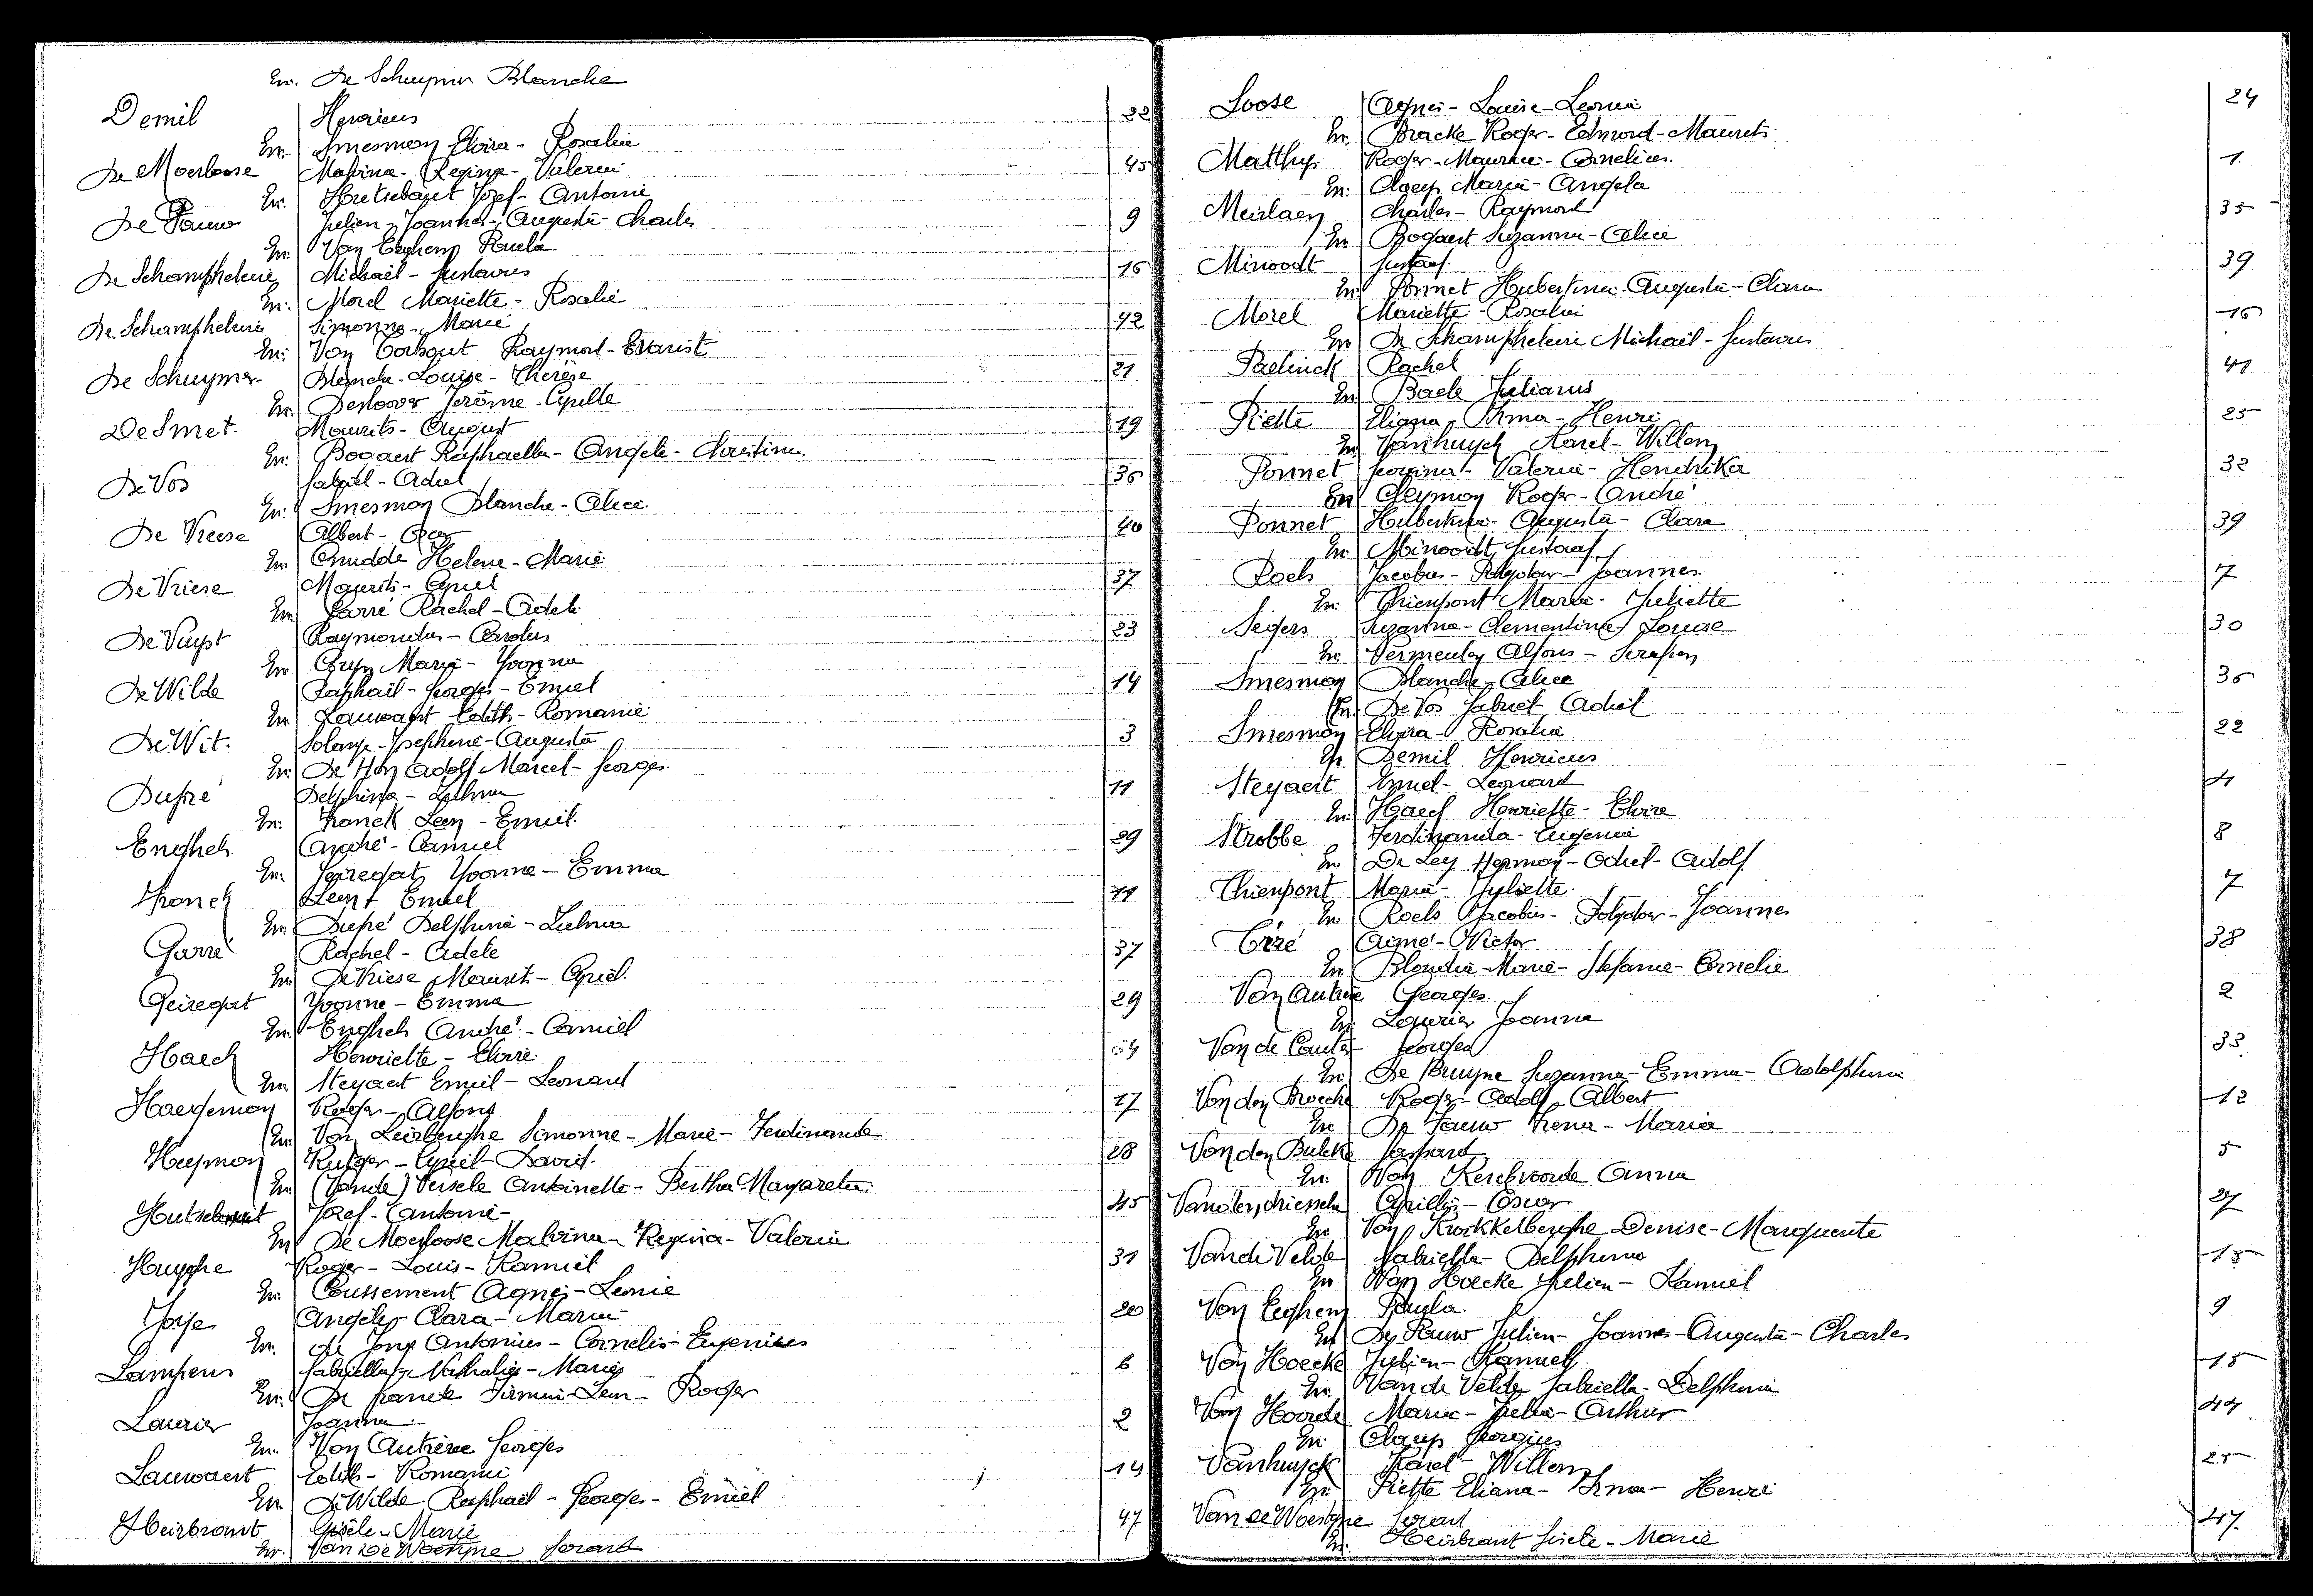 En. De Schuymer Blanche
Demil Henricus 22
En. Smesman Elvira - Rosalie
De Moerloose Malvina - Regina - Valerie 45
En. Hutsebaut Jozef - Antoine
De Pauw Julien - Joannes - Augusta - Charles 9
En. Van Eeghem Paula
De Schampheleire Michaël - Gustavus 16
En. Morel Mariette - Rosalie
De Schampheleire Simonne - Marie 42
En. Van Torhout Raymond - Evarist
De Schuymer Blanche - Louise - Thérèse 21
En. Desloover Jerôme - Cyrille
De Smet. Maurits - August 19
En. Bogaert Raphaella - Angele - Christina.
De Vos Gabriël - Achiel 36
En. Smesman Blanche - Alice.
De Vreese Albert - Oscar 40
En. Cnudde Helene - Marie
De Vriese Maurits - Cyriel 37
En. Garré Rachel - Adele
De Vuyst Raymondus - Carolus 23
En Maria - Yvonna
De Wilde Raphaël - Georges - Emiel 14
En. Lauwaert Edith - Romanie
De Wit. Solange - Josephine - Augusta 3
En. De Hon Adolf Marcel - Georges.
Dupré Delphina - Zulma 11
En. Franck Leon - Emiel.
Enghels. André - Camiel 29
En. Geiregat Yvonne - Emma
Franck Leon - Emiel 11
En. Dupré Delphina - Zulma
Garré Rachel - Adele 37
En. De Vriese Maurits - Cyriel.
Geiregat Yvonne - Emma 29
En. Enghels André - Camiel
Haeck Henriette - Elvire. 4
En. Steyaert Emiel - Leonard
Haegeman Roger - Alfons 17
En. Van Leirberghe Simonne - Marie - Ferdinande
Heyman Rutger - Cyriel - David. 28
En. (Vande) Versele Antoinette - Bertha - Margareta
Hutsebaut Jozef - Antoine - 45
En De Moerloose Malvina - Regina - Valerie
Huyghe Roger - Louis - Kamiel 31
En. Coussement Agnes - Leonie
Angèle - Clara - Maria 20
En. de Jong Antonius - Cornelis - Eugenius
Lampens Gabriella - Nathalie - Marie 6
En. De Firmin - Leon - Roger
Laurier Joanna 2
En. Van Autrève Georges
Lauwaert Edith - Romanie 14
En De Wilde Raphaël - Georges - Emiel
Heirbrant Gisèle - Marie 47
En. Van de Woestyne Gerard
Loose Agnes - Louise - Leonie 24
En. Bracke Roger - Edmond - Maurits.
Matthys Roger - Maurice - Cornelius. 1.
En. Claeys Maria - Angela
Meirlaen Charles - Raymond 35
En Bogaert Suzanna - Alice
Minoodt Gustaaf. 39
En. Ponnet Hubertina - Augusta - Clara
Morel Mariette - Rosalie 16
En De Schampheleire Michaël - Gustavus
Paelinck Rachel 41
En. Baele Julianus
Piette Eliana - Irma - Henri. 25
En Vanhuyck Karel - Willem
Ponnet Georgina - Valerie - Hendrika 32
En Cleyman Roger - André
Ponnet Hubertina - Augusta - Clara 39
En. Minoodt, Gustaaf
Roels Jacobus - Polydor - Joannes. 7
En. Thienpont Maria - Juliette
Segers Suzanna - Clementina - Louise 30
En. Vermeulen Alfons - Serafien
Smesman Blanche - Alice 36
En. De Vos Gabriël - Achiel
Smesman Elvira - Rosalia 22
En Demil Henricus
Steyaert Emiel - Leonard 4
En. Haeck Henriette - Elvire
Strobbe Ferdinanda - Eugenie 8
En De Ley Herman - Achiel - Adolf
Thienpont Maria - Juliette. 7
En. Roels Jacobus - Polydor - Joannes
Tiré Aimé - Victor 38
En Marie - Stefanie - Cornelie
Van Autrève Georges. 2
En Laurier Joanna
Van de Cauter Georges 33
En. De Bruyne Suzanna - Emma - Adolphina
Van den Broecke Roger - Adolf - Albert 12
En. De Pauw Irena - Maria
Van den Bulcke Gaspard 5
En. Van Kerckvoorde Anna
Vanden driessche Cyrillus - Oscar 27
En Van Krockkelberghe Denise - Marguerite
Van de Velde Gabriella - Delphina 15
En Van Hoecke Julien - Kamiel
Van Eeghem Paula. 9
En De Pauw Julien - Joannes - Augusta - Charles
Van Hoecke Julien - Kamiel 15
En. Van de Velde Gabriella - Delphina
Van Hoorde Marie - Julie - Arthur 44
En. Claeys Georgius
Vanhuyck Karel - Willem 25
En. Piette Eliana - Irma - Henri
Van de Woestyne Gerard 47.
En. Heirbrant Gisele - Marie